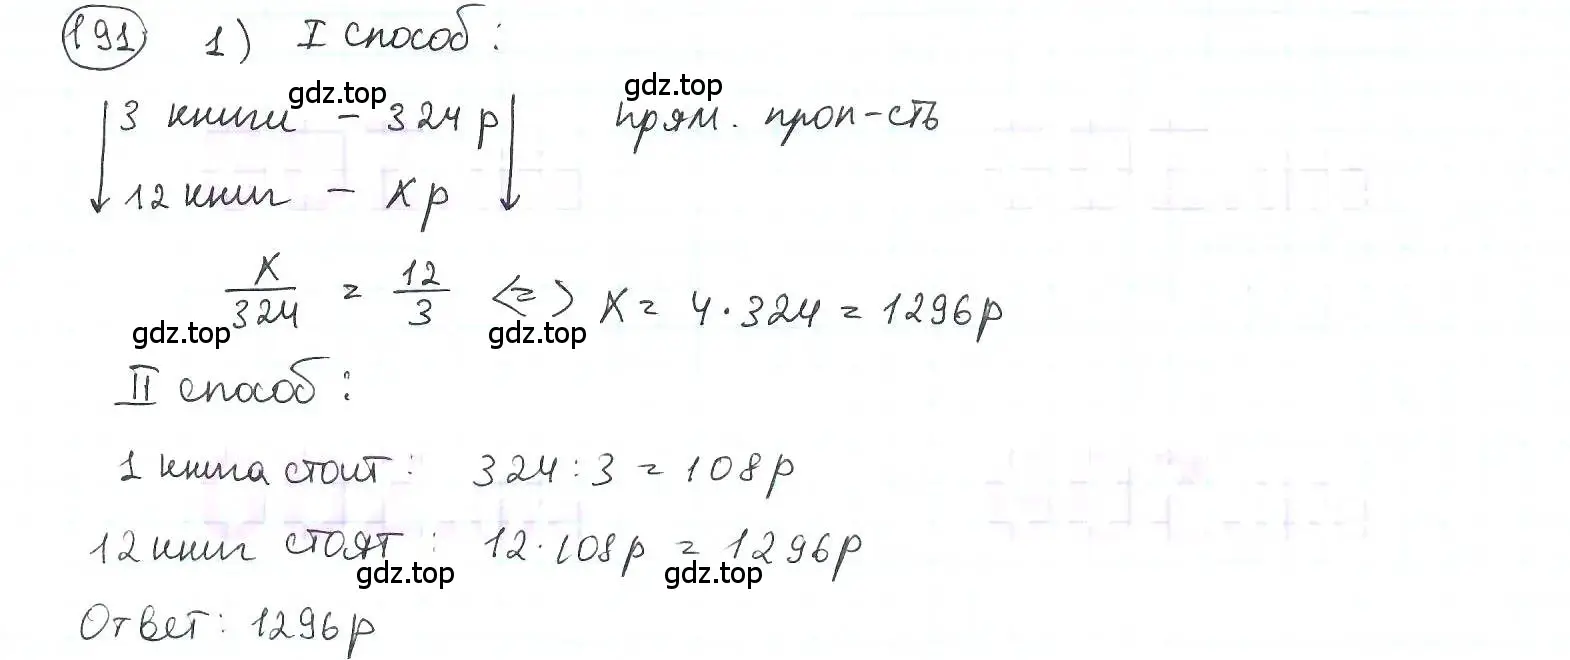 191 1) I способ:
gdz.top gdz.top
3 книги - 324 р прям. проп-сть
12 книг - x р
x/324 = 12/3 <=> x = 4 · 324 = 1296 р
gdz.top gdz.top
II способ:
1 книга стоит: 324 : 3 = 108 р
12 книг стоят: 12 · 108 р = 1296 р
gdz.top gdz.top
Ответ: 1296 р